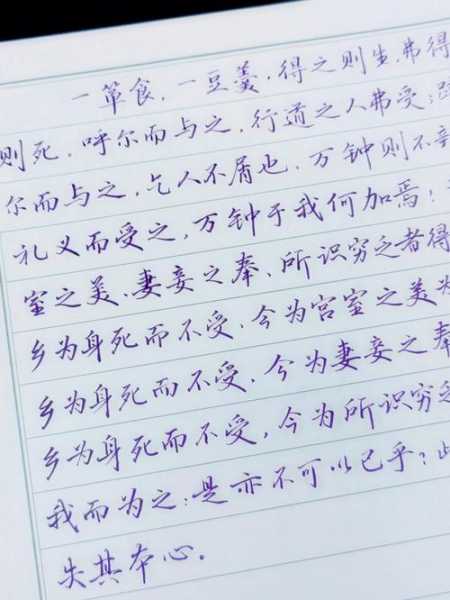 一箪食,一豆羹,得之则生,弗得
则死,呼尔而与之,行道之人弗受;蹴
尔而与之,乞人不屑也,万钟则不辩
礼义而受之,万钟于我何加焉!
室之美、妻妾之奉、所识穷乏者得
乡为身死而不受,今为宫室之美为
乡为身死而不受,今为妻妾之奉
乡为身死而不受,今为所识穷乏
我而为之:是亦不可以已乎?此
失其本心。